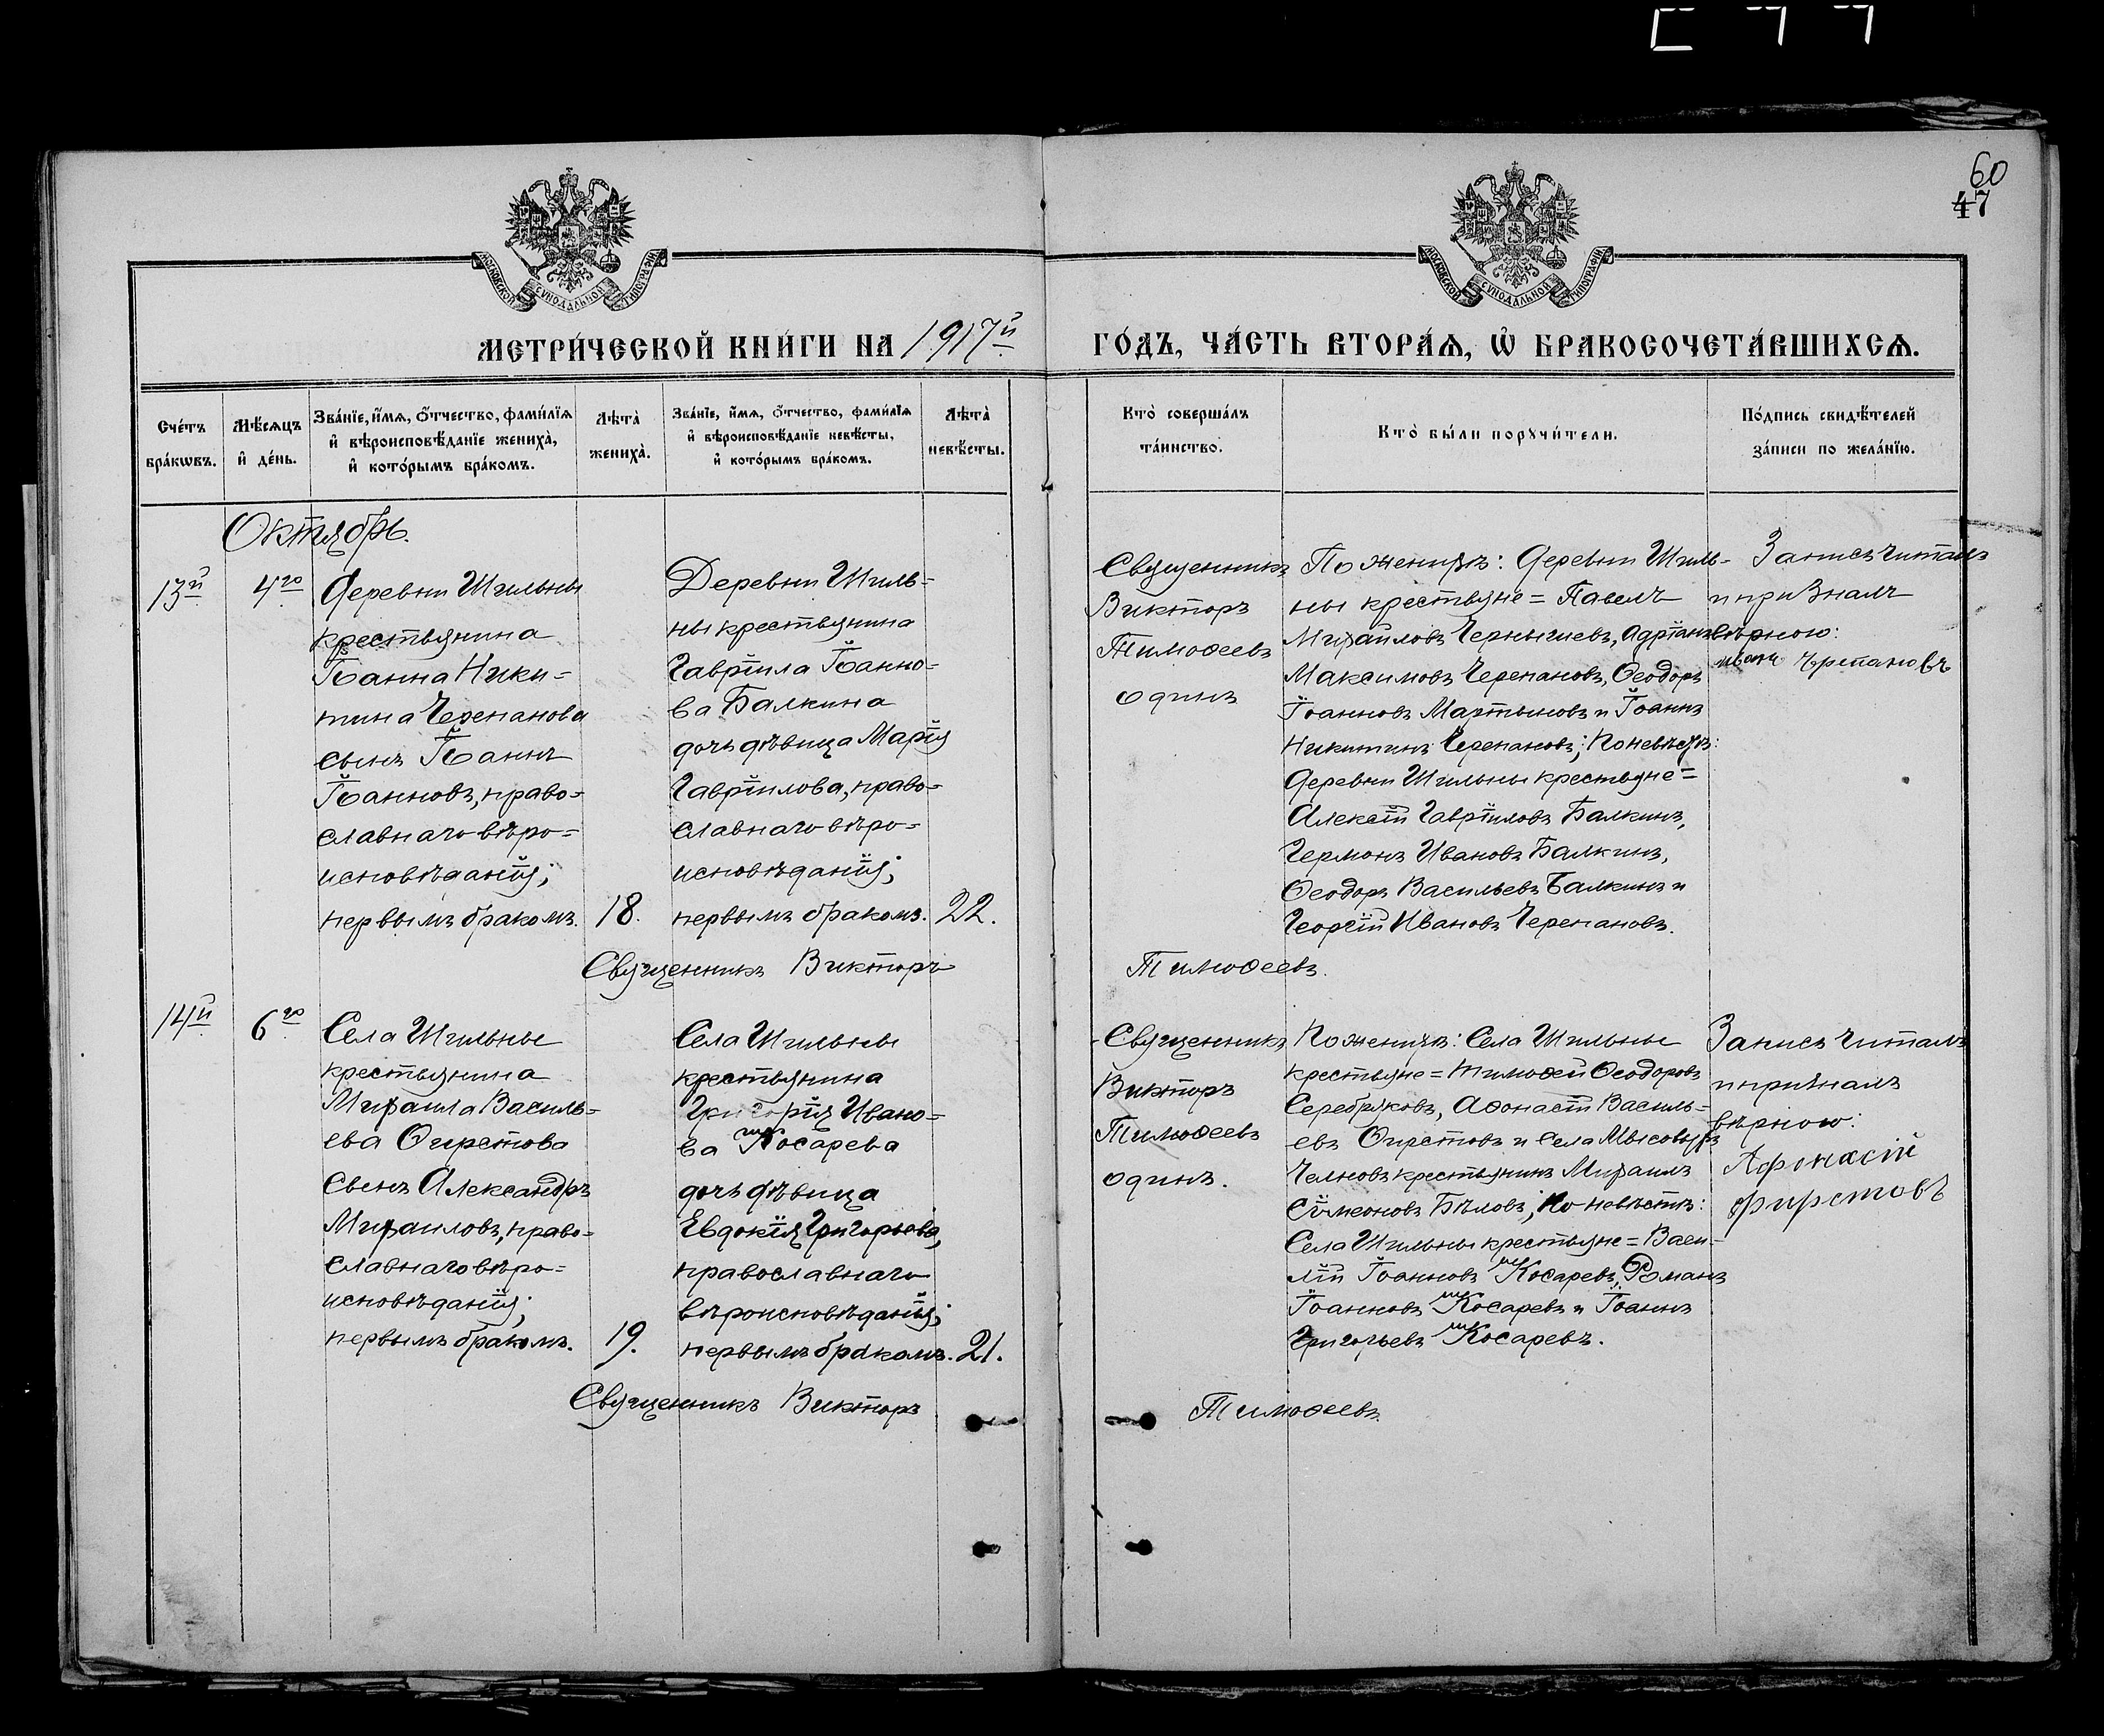 60
47
МОСКОВСКОЙ СѴНОДАЛЬНОЙ ТИПОГРАФІИ
МОСКОВСКОЙ СѴНОДАЛЬНОЙ ТИПОГРАФІИ
МЕТРИ́ЧЕСКОЙ КНИ́ГИ НА 1917й
ГО́ДЪ, ЧА́СТЬ ВТОРА́Ѧ, Ѡ҆ БРАКОСОЧЕТА́ВШИХСѦ.
Сче́тъ
бра́кѡвъ.
Мѣ́сѧцъ
и҆ де́нь.
Зва́нїе, и҆́мѧ, ѻ҆́тчество, фами́лїѧ
и҆ вѣроисповѣ́данїе жениха̀,
и҆ кото́рымъ бра́комъ.
Лѣта̀
жениха̀.
Зва́нїе, и҆́мѧ, ѻ҆́тчество, фами́лїѧ
и҆ вѣроисповѣ́данїе невѣ́сты,
и҆ кото́рымъ бра́комъ.
Лѣта̀
невѣ́сты.
Кто̀ соверша́лъ
та́инство.
Кто̀ бы́ли порꙋчи́тели.
По́дпись свидѣ́телей
за́писи по жела́нїю.
Октябрь.
13й
4го
Деревни Шильны
крестьянина
Іоанна Ники-
тина Черепанова
сынъ Іоаннъ
Іоанновъ, право-
славнаго вѣро-
исповѣданія;
первымъ бракомъ.
18.
Деревни Шиль-
ны крестьянина
Гавріила Іоанно-
ва Балкина
дочь дѣвица Марія
Гавріилова, право-
славнаго вѣро-
исповѣданія;
первымъ бракомъ.
22.
Священникъ
Викторъ
Тимоѳеевъ
одинъ
По женихѣ: Деревни Шиль-
ны крестьяне = Павелъ
Михаиловъ Чернышевъ, Адріанъ
Максимовъ Черепановъ, Ѳеодоръ
Іоанновъ Мартыновъ и Іоаннъ
Никитинъ Черепановъ; По невѣстѣ:
Деревни Шильны крестьяне =
Алексій Гавріиловъ Балкинъ,
Германъ Ивановъ Балкинъ,
Ѳеодоръ Васильевъ Балкинъ и
Георгій Ивановъ Черепановъ.
Запись читалъ
и призналъ
вѣрною:
иванъ Чрепановъ
Священникъ Викторъ Тимоѳеевъ.
14й
6го
Села Шильны
крестьянина
Михаила Василь-
ева Ѳирстова
сынъ Александръ
Михаиловъ, право-
славнаго вѣро-
исповѣданія;
первымъ бракомъ.
19.
Села Шильны
крестьянина
Григорія Ивано-
ва Кшосарева
дочь дѣвица
Евдокія Григорьева,
православнаго
вѣроисповѣданія;
первымъ бракомъ.
21.
Священникъ
Викторъ
Тимоѳеевъ
одинъ.
По женихѣ: Села Шильны
крестьяне = Тимоѳей Ѳеодоровъ
Серебряковъ, Аѳонасій Василь-
евъ Ѳирстовъ и села Мысовыхъ
Челновъ крестьянинъ Михаилъ
Симеоновъ Бѣловъ; По невѣстѣ:
Села Шильны крестьяне = Васи-
лій Іоанновъ Косаревъ, Романъ
Іоанновъ Косаревъ и Іоаннъ
Григорьевъ Косаревъ.
Запись читалъ
и призналъ
вѣрною:
Афонасій
Фирстовъ
Священникъ Викторъ Тимоѳеевъ